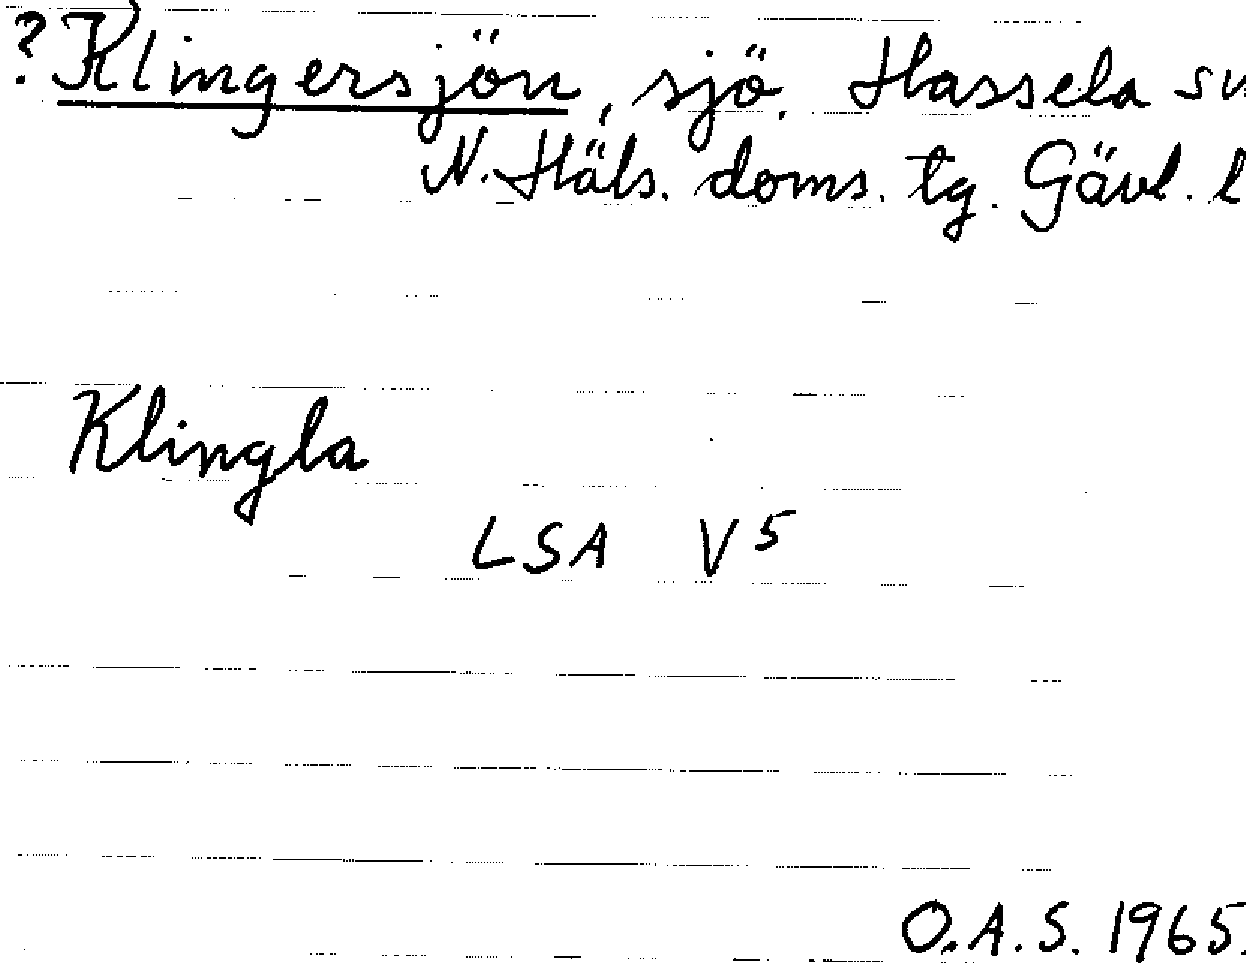 ?Klingersjön, sjö. Hassela sn
N. Häls. doms. tg. Gävl. l
Klingla
LSA V5
O.A.S. 1965.